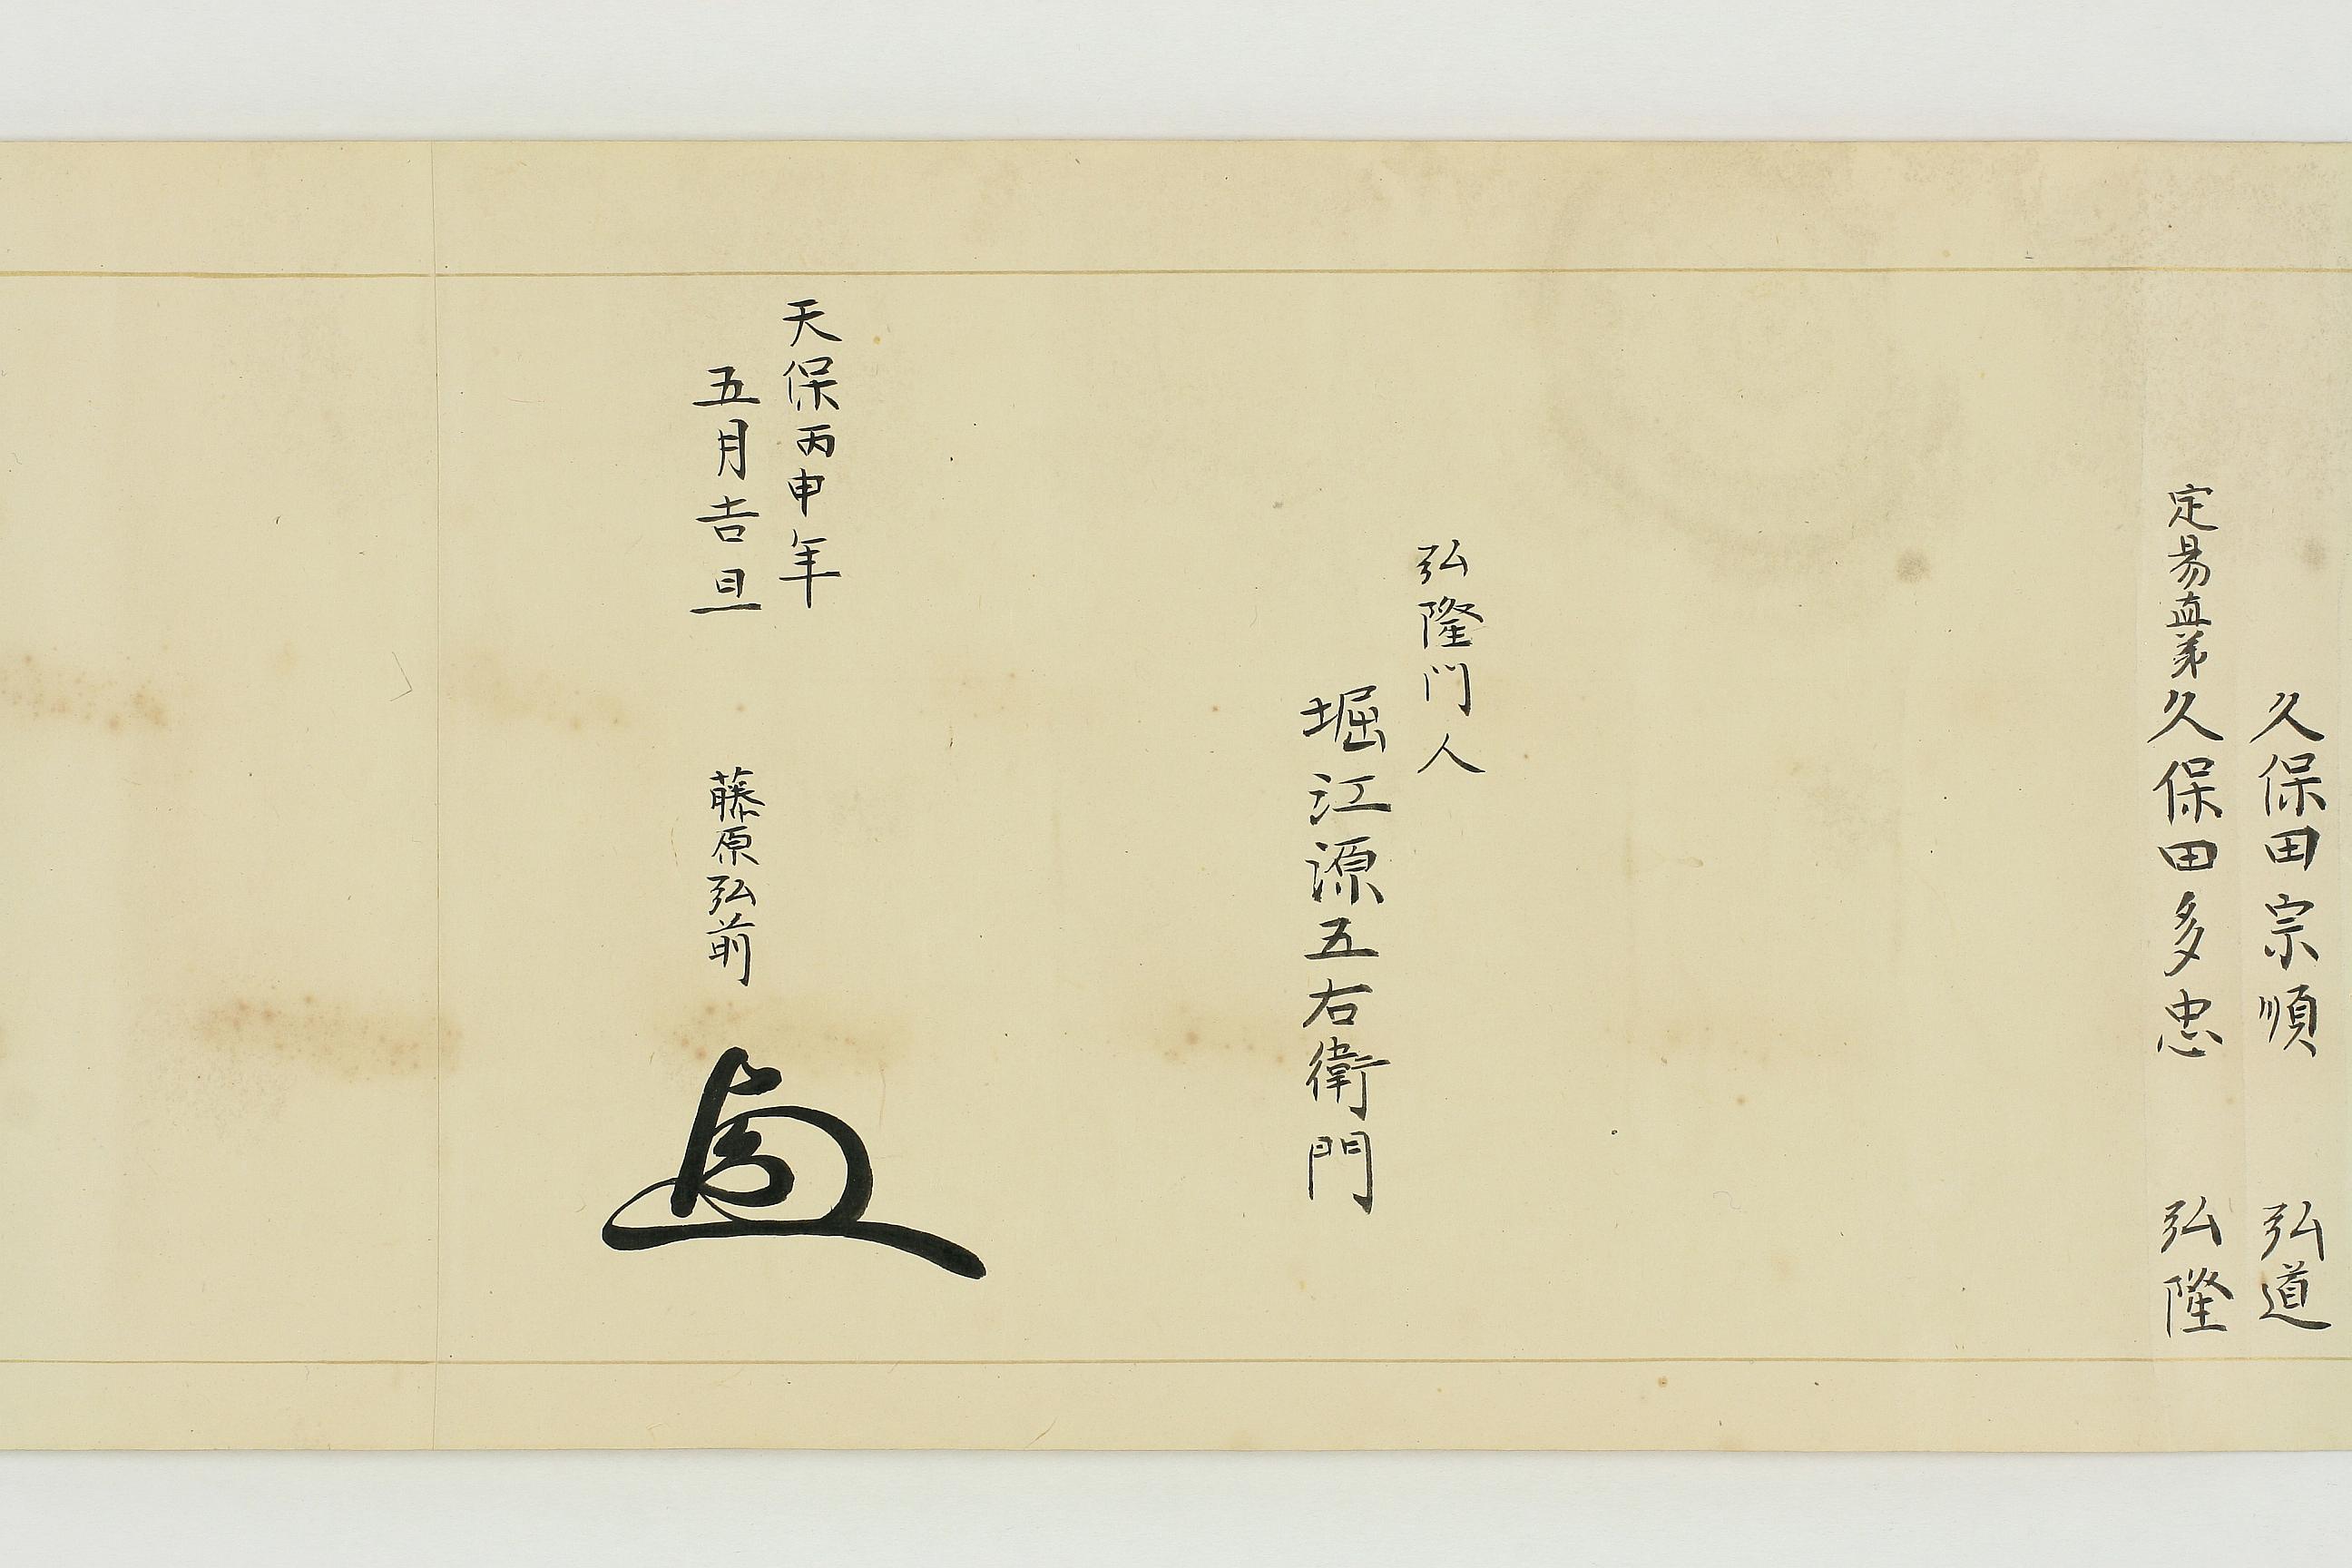 久保田宗順 弘道
定易直弟久保田多忠 弘隆
弘隆門人
堀江源五右衛門
天保丙申年
五月吉旦
藤原弘前